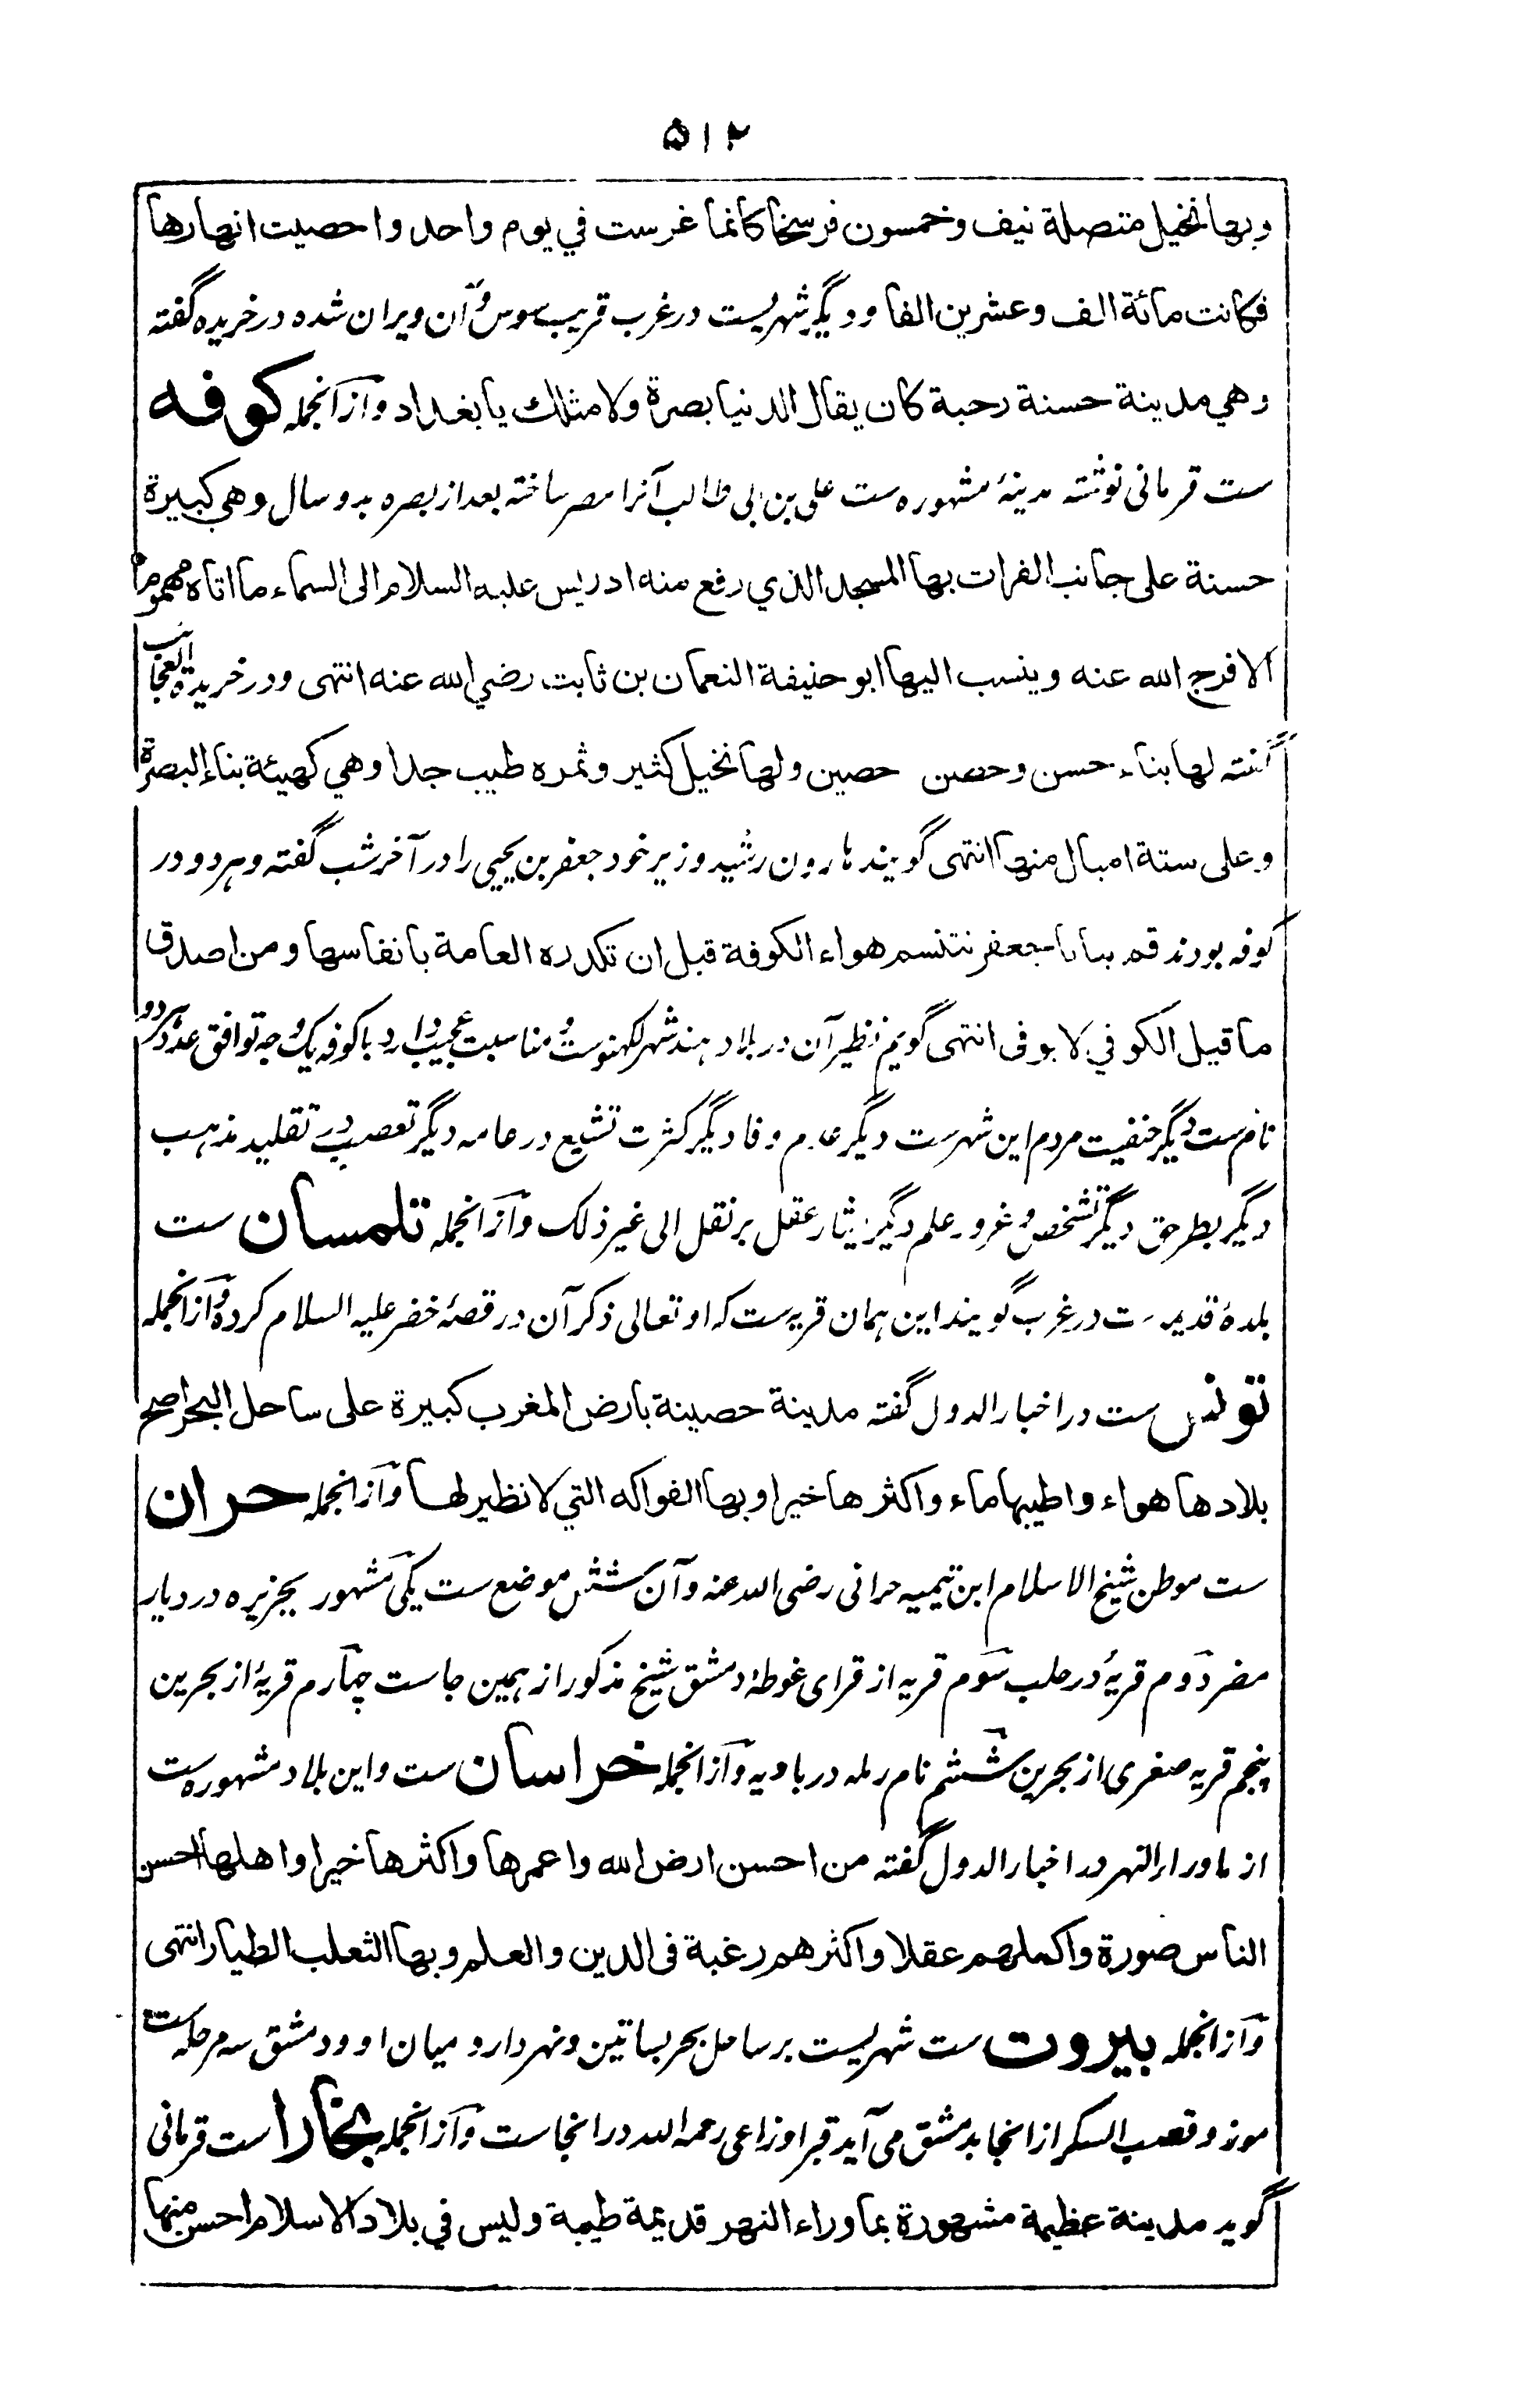 ۵۱۲
وبها نخيل متصلة نيف وخمسون فرسخا كانما غرست في يوم واحد واحصيت انهارها
فكانت مائة الف وعشرين الفا ودیگر شهریست در غرب قریب سوس وآن ویران شده در خریده گفته
وهي مدينة حسنة رحبة كان يقال الدنيا بصرة ولا مثلك يا بغداد وازانجمله کوفه
ست قرمانی نوشته مدینهٔ مشهوره ست علی بن ابی طالب آنرا مصر ساخته بعد از بصره بدو سال وهي كبيرة
حسنة على جانب الفرات بها المسجد الذي رفع منه ادريس عليه السلام الى السماء ما اتاه مهموم
الا فرج الله عنه وينسب اليها ابو حنيفة النعمان بن ثابت رضي الله عنه انتهى ودر خریدة العجائب
گفته لها بناء حسن وحصن حصين ولها نخيل كثير وثمره طيب جدا وهي كهيئة بناء البصرة
وعلى ستة اميال منها انتهى گویند هارون رشید وزیر خود جعفر بن یحیی را در آخر شب گفته وهر دو در
کوفه بودند قم بنا يا جعفر نتنسم هواء الكوفة قبل ان تكدره العامة بانفاسها ومن اصدق
ما قيل الكوفي لا يوفى انتهى گویم نظیر آن در بلاد هند شهر لکهنوست ومناسبت عجیب دارد با کوفه یک وجه توافق عدد هر دو
نام ست دیگر حنفیت مردم این شهرست دیگر عدم وفا دیگر کثرت تشیع در عامه دیگر تعصب در تقلید مذهب
دیگر بطر حق دیگر تشخص وغرور علم دیگر ایثار عقل بر نقل الی غیر ذلک وازانجمله تلمسان ست
بلدهٔ قدیمه ست در غرب گویند این همان قریه ست که او تعالی ذکر آن در قصهٔ خضر علیه السلام کرده وازانجمله
تونس ست در اخبار الدول گفته مدينة حصينة بارض المغرب كبيرة على ساحل البحر اصح
بلادها هواء واطيبها ماء واكثرها خيرا وبها الفواكه التي لا نظير لها وازانجمله حران
ست موطن شیخ الاسلام ابن تیمیه حرانی رضی الله عنه وآن شش موضع ست یکی مشهور بجزیره در دیار
مضر دوم قریهٔ در حلب سوم قریه از قرای غوطهٔ دمشق شیخ مذکور از همین جاست چهارم قریهٔ از بحرین
پنجم قریه صغری از بحرین ششم نام رمله در بادیه وازانجمله خراسان ست واین بلاد مشهوره ست
از ماوراء النهر در اخبار الدول گفته من احسن ارض الله واعمرها واكثرها خيرا واهلها احسن
الناس صورة واكملهم عقلا واكثرهم رغبة فى الدين والعلم وبها الثعلب الطيار انتهى
وازانجمله بیروت ست شهریست بر ساحل بحر بساتین ونهر دارد ومیان او ودمشق سه مرحله ست
موز وقصب السکر ازانجا بدمشق می آید قبر اوزاعی رحمه الله در انجاست وازانجمله بخارا ست قرمانی
گوید مدينة عظيمة مشهورة بماوراء النهر قديمة طيبة وليس في بلاد الاسلام احسن منها